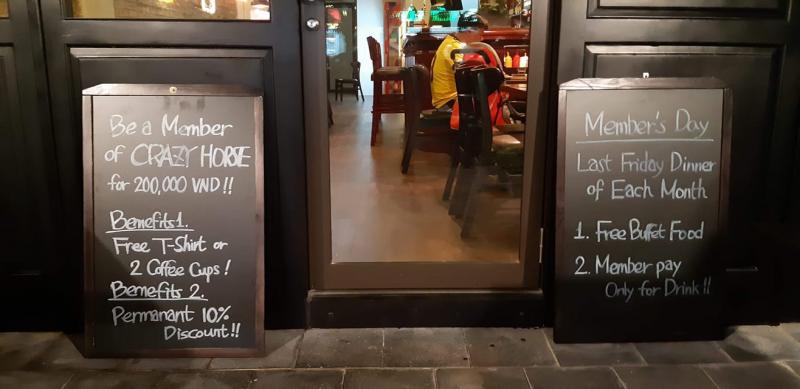 Be a Member
of CRAZY HORSE
for 200,000 VND !!
Benefits 1.
Free T-Shirt or
2 Coffee Cups !
Benefits 2.
Permanant 10%
Discount !!
Member's Day
Last Friday Dinner
of Each Month
1. Free Buffet Food
2. Member pay
Only for Drink !!